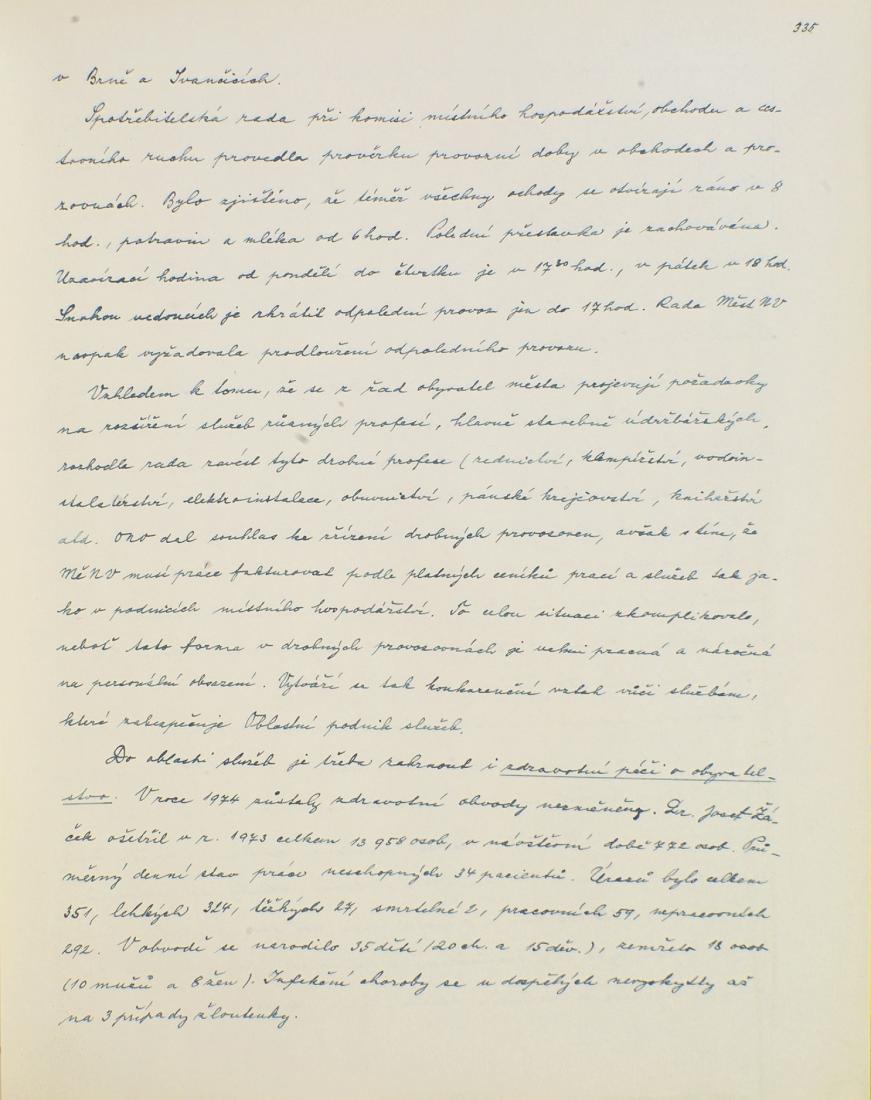 335
v Brně a Ivančicích.
Spotřebitelská rada při komisi místního hospodářství, obchodu a ces-
tovního ruchu provedla prověrku provozní doby v obchodech a pro-
vozovnách. Bylo zjištěno, že téměř všechny ochody se otvírají ráno v 8
hod., potravin a mléka od 6 hod. Polední přestavka je zachovávána.
Uzavírací hodina od pondělí do čtvrtku je v 17³⁰ hod., v pátek v 18 hod.
Snahou vedoucích je zkrátit odpolední provoz jen do 17 hod. Rada Měst NV
naopak vyžadovala prodloužení odpoledního provozu.
Vzhledem k tomu, že se z řad obyvatel města projevují požadavky
na rozšíření služeb různých profesí, hlavně stavebně údržbářských,
rozhodla rada zavést tyto drobné profese (zednictví, klempířství, vodoin-
stalatérství, elektroinstalace, obuvnictví, pánské krejčovství, knihařství
atd. ONV dal souhlas ke zřízení drobných provozoven, avšak s tím, že
MěNV musí práce fakturovat podle platných ceníků prací a služeb tak ja-
ko v podnicích místního hospodářství. To celou situaci zkomplikovalo,
neboť tato forma v drobných provozovnách je velmi pracná a náročná
na personální obsazení. Vytváří se tak konkurenční vztah vůči službám,
které zabezpečuje Oblastní podnik služeb.
Do oblasti služeb je třeba zahrnout i zdravotní péči o obyvatel-
stvo. V roce 1974 zůstaly zdravotní obvody nezměněny. Dr. Josef Žá-
ček ošetřil v r. 1973 celkem 13 958 osob, v návštěvní době 772 osob. Prů-
měrný denní stav práce neschopných 34 pacientů. Úrazů bylo celkem
351, lehkých 324, těžkých 27, smrtelné 2, pracovních 59, nepracovních
292. V obvodě se narodilo 35 dětí (20 ch. a 15 děv.), zemřelo 18 osob
(10 mužů a 8 žen). Infekční choroby se u dospělých nevyskytly až
na 3 případy žloutenky.